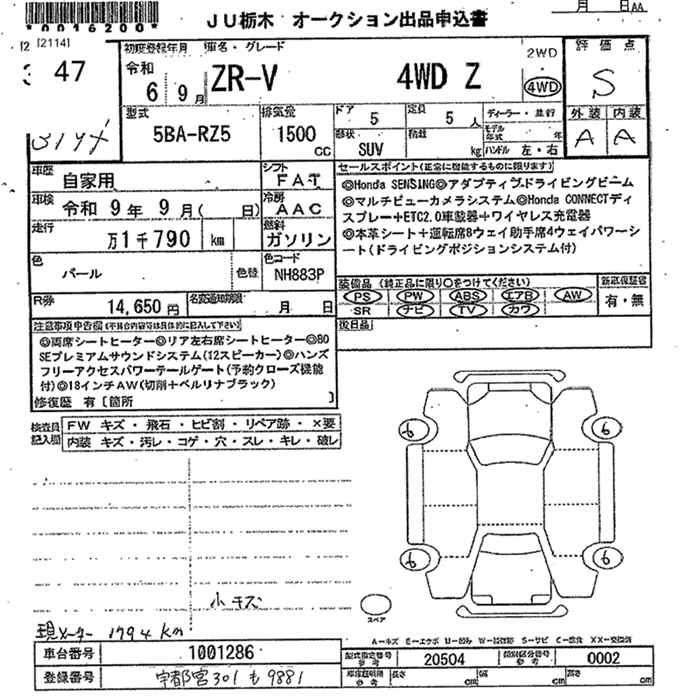 月 日 AA
*0016200*
JU栃木 オークション出品申込書
[2114]
47
初度登録年月 車名・グレード
令和 6 9月
ZR-V 4WD Z
2WD
4WD
評価点
S
型式
5BA-RZ5
排気量
1500 CC
ドア 5
定員 5人
形状 SUV
積載 kg
ディーラー・並行
モデル年式 年
ハンドル 左・右
外装 内装
A A
車歴 自家用
シフト FAT
車検 令和 9年 9月( 日)
冷房 AAC
走行 万1千790 km
燃料 ガソリン
色 パール
色替
色コード NH883P
R券 14,650円
名変通知期限 月 日
セールスポイント(正常に機能するものに限ります)
◎Honda SENSING◎アダプティブドライビングビーム
◎マルチビューカメラシステム◎Honda CONNECTディ
スプレー+ETC2.0車載器+ワイヤレス充電器
◎本革シート+運転席8ウェイ助手席4ウェイパワーシ
ート(ドライビングポジションシステム付)
装備品(純正品に限り○をつけてください)
PS PW ABS エアB AW
SR ナビ TV カワ
新車保証書
有・無
後日品
注意事項申告欄(不具合内容等は具体的に記入して下さい)
◎両席シートヒーター◎リア左右席シートヒーター◎BO
SEプレミアムサウンドシステム(12スピーカー)◎ハンズ
フリーアクセスパワーテールゲート(予約クローズ機能
付)◎18インチAW(切削+ベルリナブラック)
修復歴 有〔箇所 〕
検査員記入欄
FW キズ・飛石・ヒビ割・リペア跡・×要
内装 キズ・汚レ・コゲ・穴・スレ・キレ・破レ
6
6
6
6
小キズ
スペア
現メーター 1794km
A-キズ E-エクボ U-凹み W-補修跡 S-サビ C-腐食 XX-交換済
車台番号 1001286
型式指定番号 参考 20504
類別区分番号 参考 0002
登録番号 宇都宮 301 も 9881
車庫証明用 参考
長さ cm
幅 cm
高さ cm